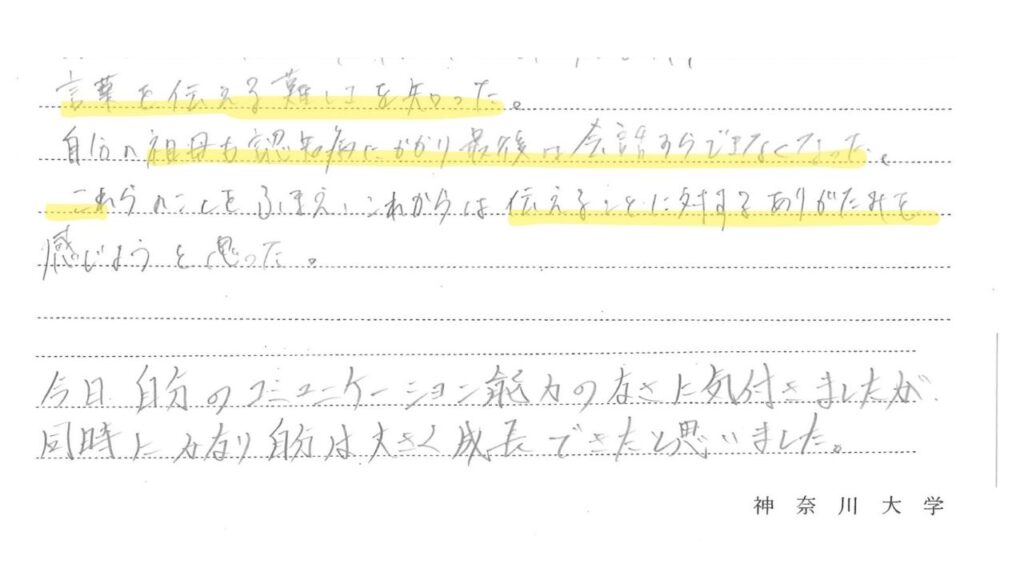 言葉を伝える難しさを知った。
自分の祖母も認知病にかかり最後は会話すらできなくなった。
これらのことをふまえ、これからは伝えることに対するありがたみを
感じようと思った。
今日自分のコミュニケーション能力のなさに気付きましたが、
同時にかなり自分は大きく成長できたと思いました。
神奈川大学